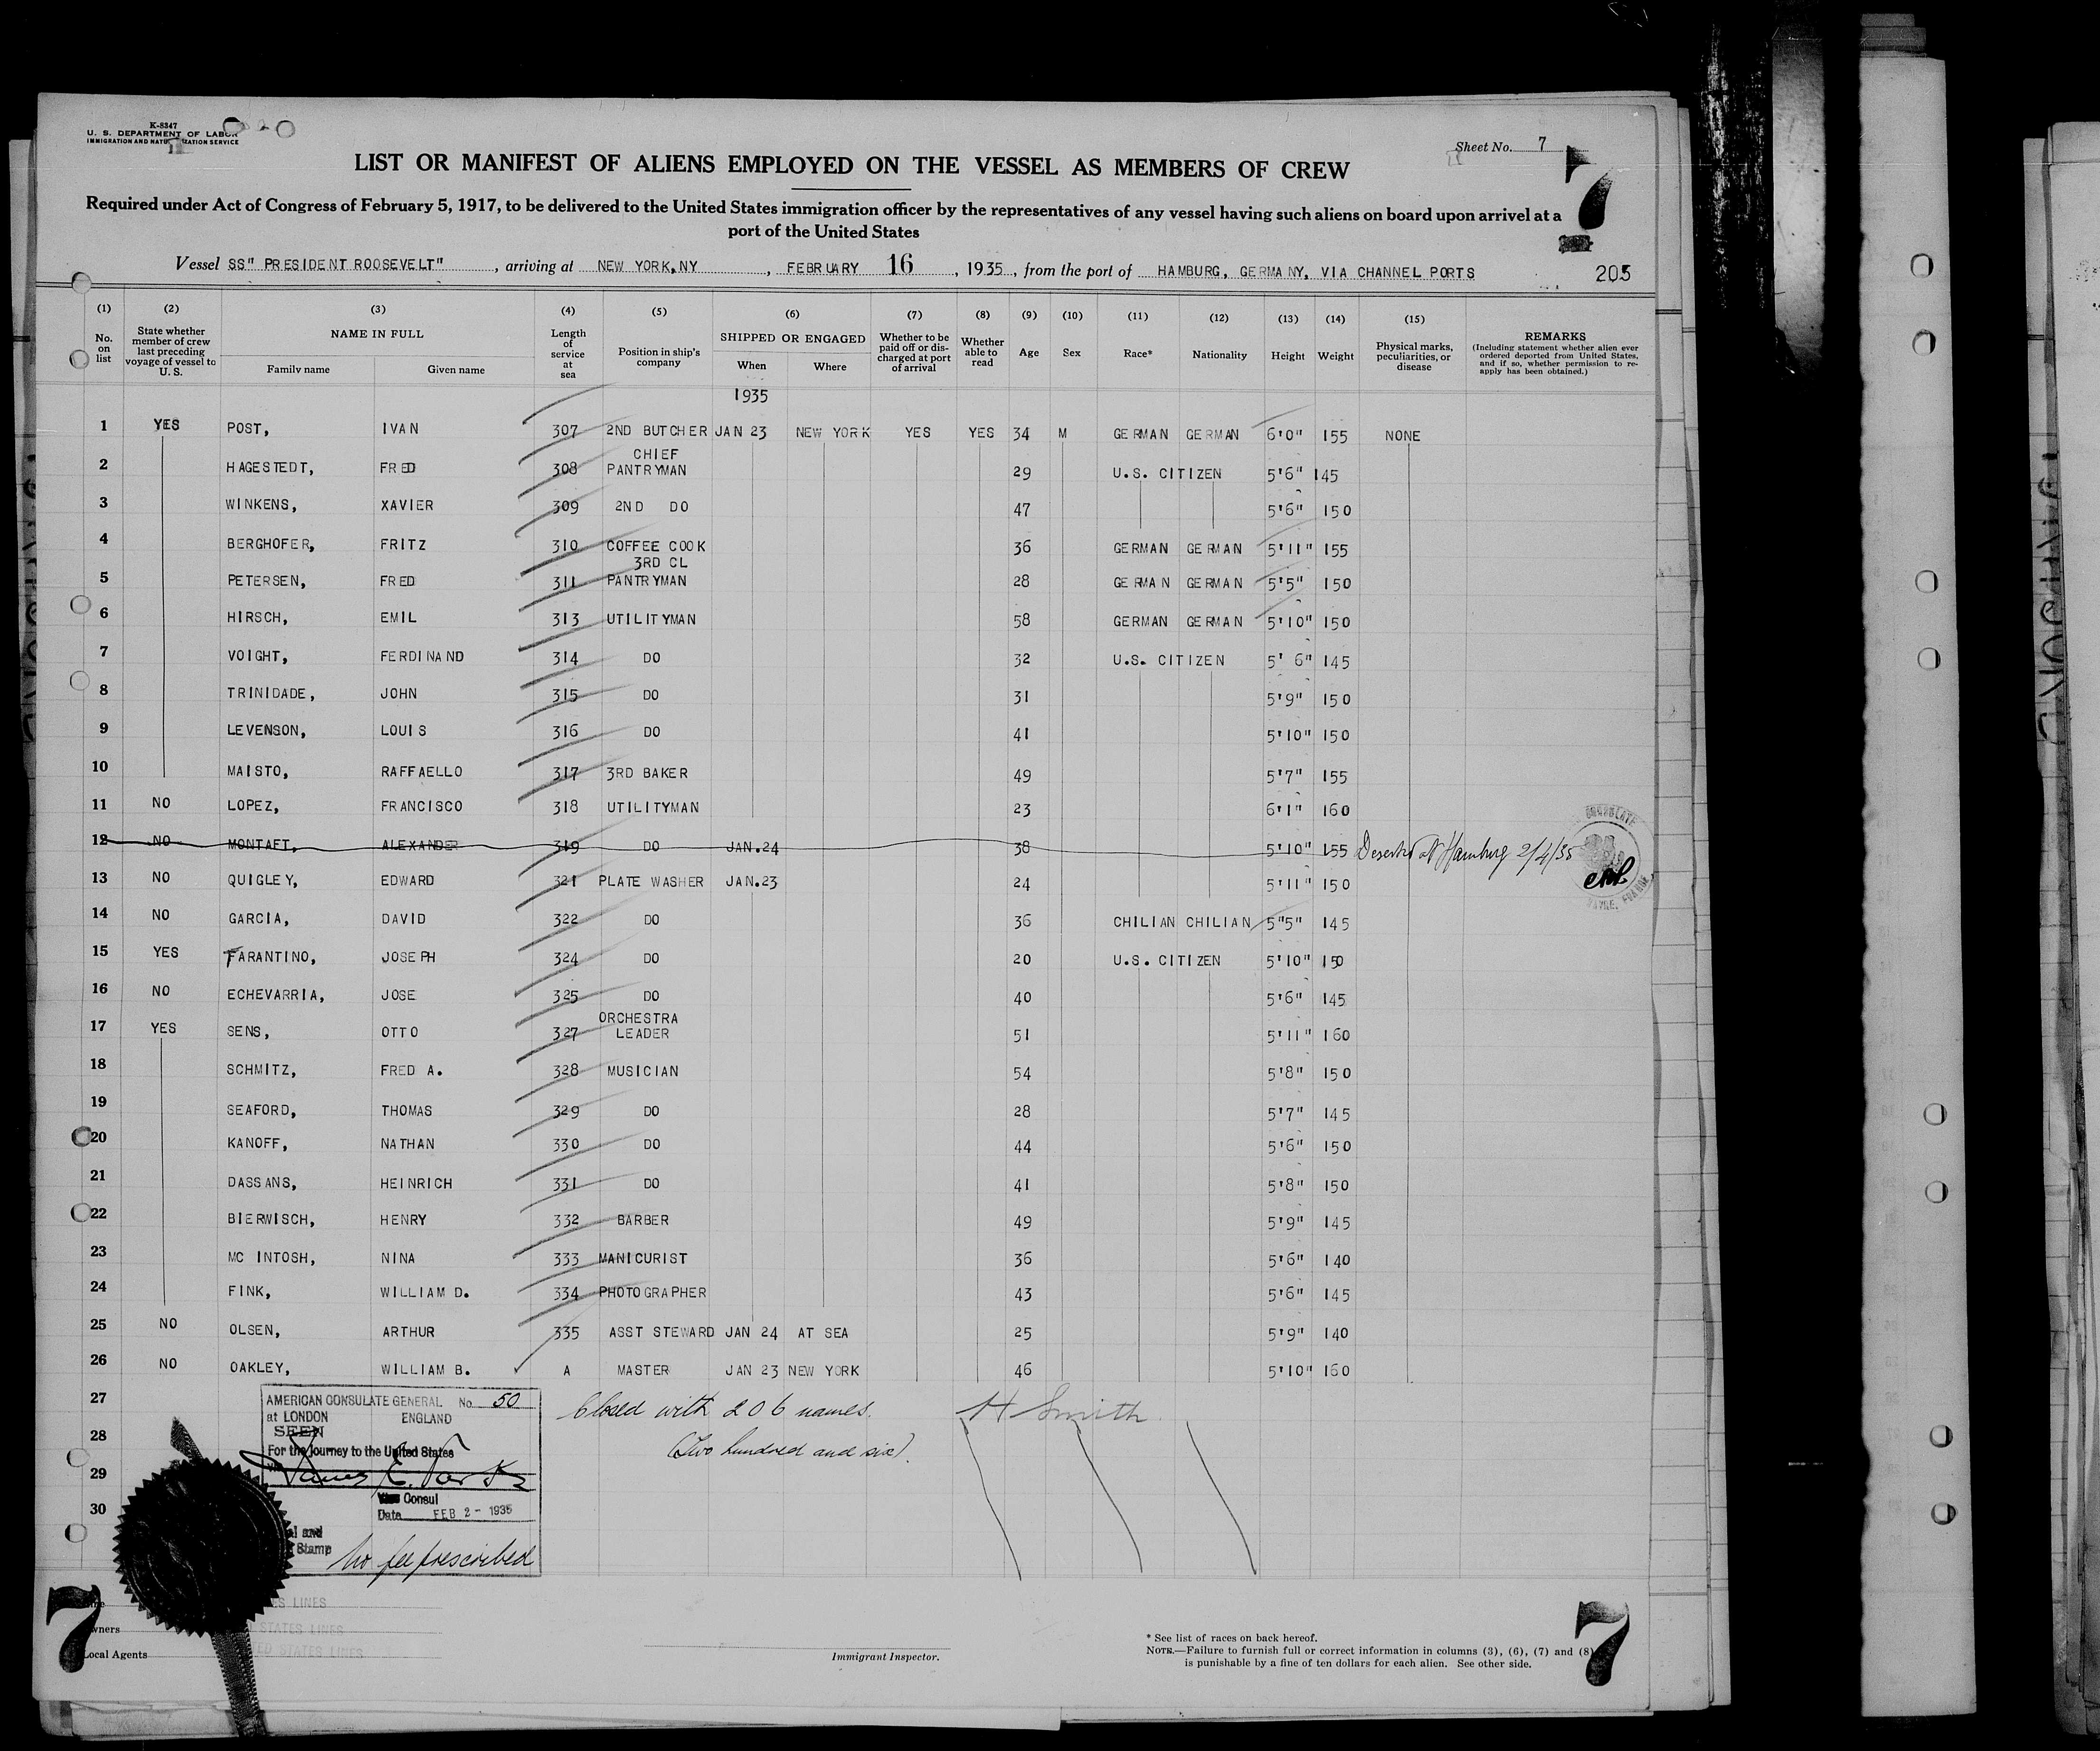 K-8347
U. S. DEPARTMENT OF LABOR
IMMIGRATION AND NATURALIZATION SERVICE
Sheet No. 7
7
LIST OR MANIFEST OF ALIENS EMPLOYED ON THE VESSEL AS MEMBERS OF CREW
Required under Act of Congress of February 5, 1917, to be delivered to the United States immigration officer by the representatives of any vessel having such aliens on board upon arrival at a
port of the United States
Vessel SS" PRESIDENT ROOSEVELT" , arriving at NEW YORK,NY , FEBRUARY 16 , 1935 , from the port of HAMBURG, GERMANY, VIA CHANNEL PORTS
205
(1) No. on list (2) State whether member of crew last preceding voyage of vessel to U. S. (3) NAME IN FULL Family name Given name (4) Length of service at sea (5) Position in ship's company (6) SHIPPED OR ENGAGED When Where (7) Whether to be paid off or discharged at port of arrival (8) Whether able to read (9) Age (10) Sex (11) Race* (12) Nationality (13) Height (14) Weight (15) Physical marks, peculiarities, or disease REMARKS (Including statement whether alien ever ordered deported from United States, and if so, whether permission to reapply has been obtained.)
1935
1 YES POST, IVAN 307 2ND BUTCHER JAN 23 NEW YORK YES YES 34 M GERMAN GERMAN 6'0" 155 NONE
2 HAGESTEDT, FRED 308 CHIEF PANTRYMAN 29 U.S. CITIZEN 5'6" 145
3 WINKENS, XAVIER 309 2ND DO 47 5'6" 150
4 BERGHOFER, FRITZ 310 COFFEE COOK 36 GERMAN GERMAN 5'11" 155
5 PETERSEN, FRED 311 3RD CL PANTRYMAN 28 GERMAN GERMAN 5'5" 150
6 HIRSCH, EMIL 313 UTILITYMAN 58 GERMAN GERMAN 5'10" 150
7 VOIGHT, FERDINAND 314 DO 32 U.S. CITIZEN 5' 6" 145
8 TRINIDADE, JOHN 315 DO 31 5'9" 150
9 LEVENSON, LOUIS 316 DO 41 5'10" 150
10 MAISTO, RAFFAELLO 317 3RD BAKER 49 5'7" 155
11 NO LOPEZ, FRANCISCO 318 UTILITYMAN 23 6'1" 160
12 NO MONTAFT, ALEXANDER 319 DO JAN.24 38 5'10" 155 Deserted at Hamburg 2/4/35
13 NO QUIGLEY, EDWARD 321 PLATE WASHER JAN.23 24 5'11" 150
14 NO GARCIA, DAVID 322 DO 36 CHILIAN CHILIAN 5"5" 145
15 YES FARANTINO, JOSEPH 324 DO 20 U.S. CITIZEN 5'10" 150
16 NO ECHEVARRIA, JOSE 325 DO 40 5'6" 145
17 YES SENS, OTTO 327 ORCHESTRA LEADER 51 5'11" 160
18 SCHMITZ, FRED A. 328 MUSICIAN 54 5'8" 150
19 SEAFORD, THOMAS 329 DO 28 5'7" 145
20 KANOFF, NATHAN 330 DO 44 5'6" 150
21 DASSANS, HEINRICH 331 DO 41 5'8" 150
22 BIERWISCH, HENRY 332 BARBER 49 5'9" 145
23 MC INTOSH, NINA 333 MANICURIST 36 5'6" 140
24 FINK, WILLIAM D. 334 PHOTOGRAPHER 43 5'6" 145
25 NO OLSEN, ARTHUR 335 ASST STEWARD JAN 24 AT SEA 25 5'9" 140
26 NO OAKLEY, WILLIAM B. A MASTER JAN 23 NEW YORK 46 5'10" 160
27
28
29
30
AMERICAN CONSULATE GENERAL No. 50
at LONDON ENGLAND
SEEN
For the journey to the United States
Vice Consul
Date FEB 2 - 1935
Stamp
No fee prescribed
Closed with 206 names. H Smith
(Two hundred and six).
7
STATES LINES
Owners STATES LINES
Local Agents UNITED STATES LINES
Immigrant Inspector.
* See list of races on back hereof.
NOTE.—Failure to furnish full or correct information in columns (3), (6), (7) and (8)
is punishable by a fine of ten dollars for each alien. See other side.
7